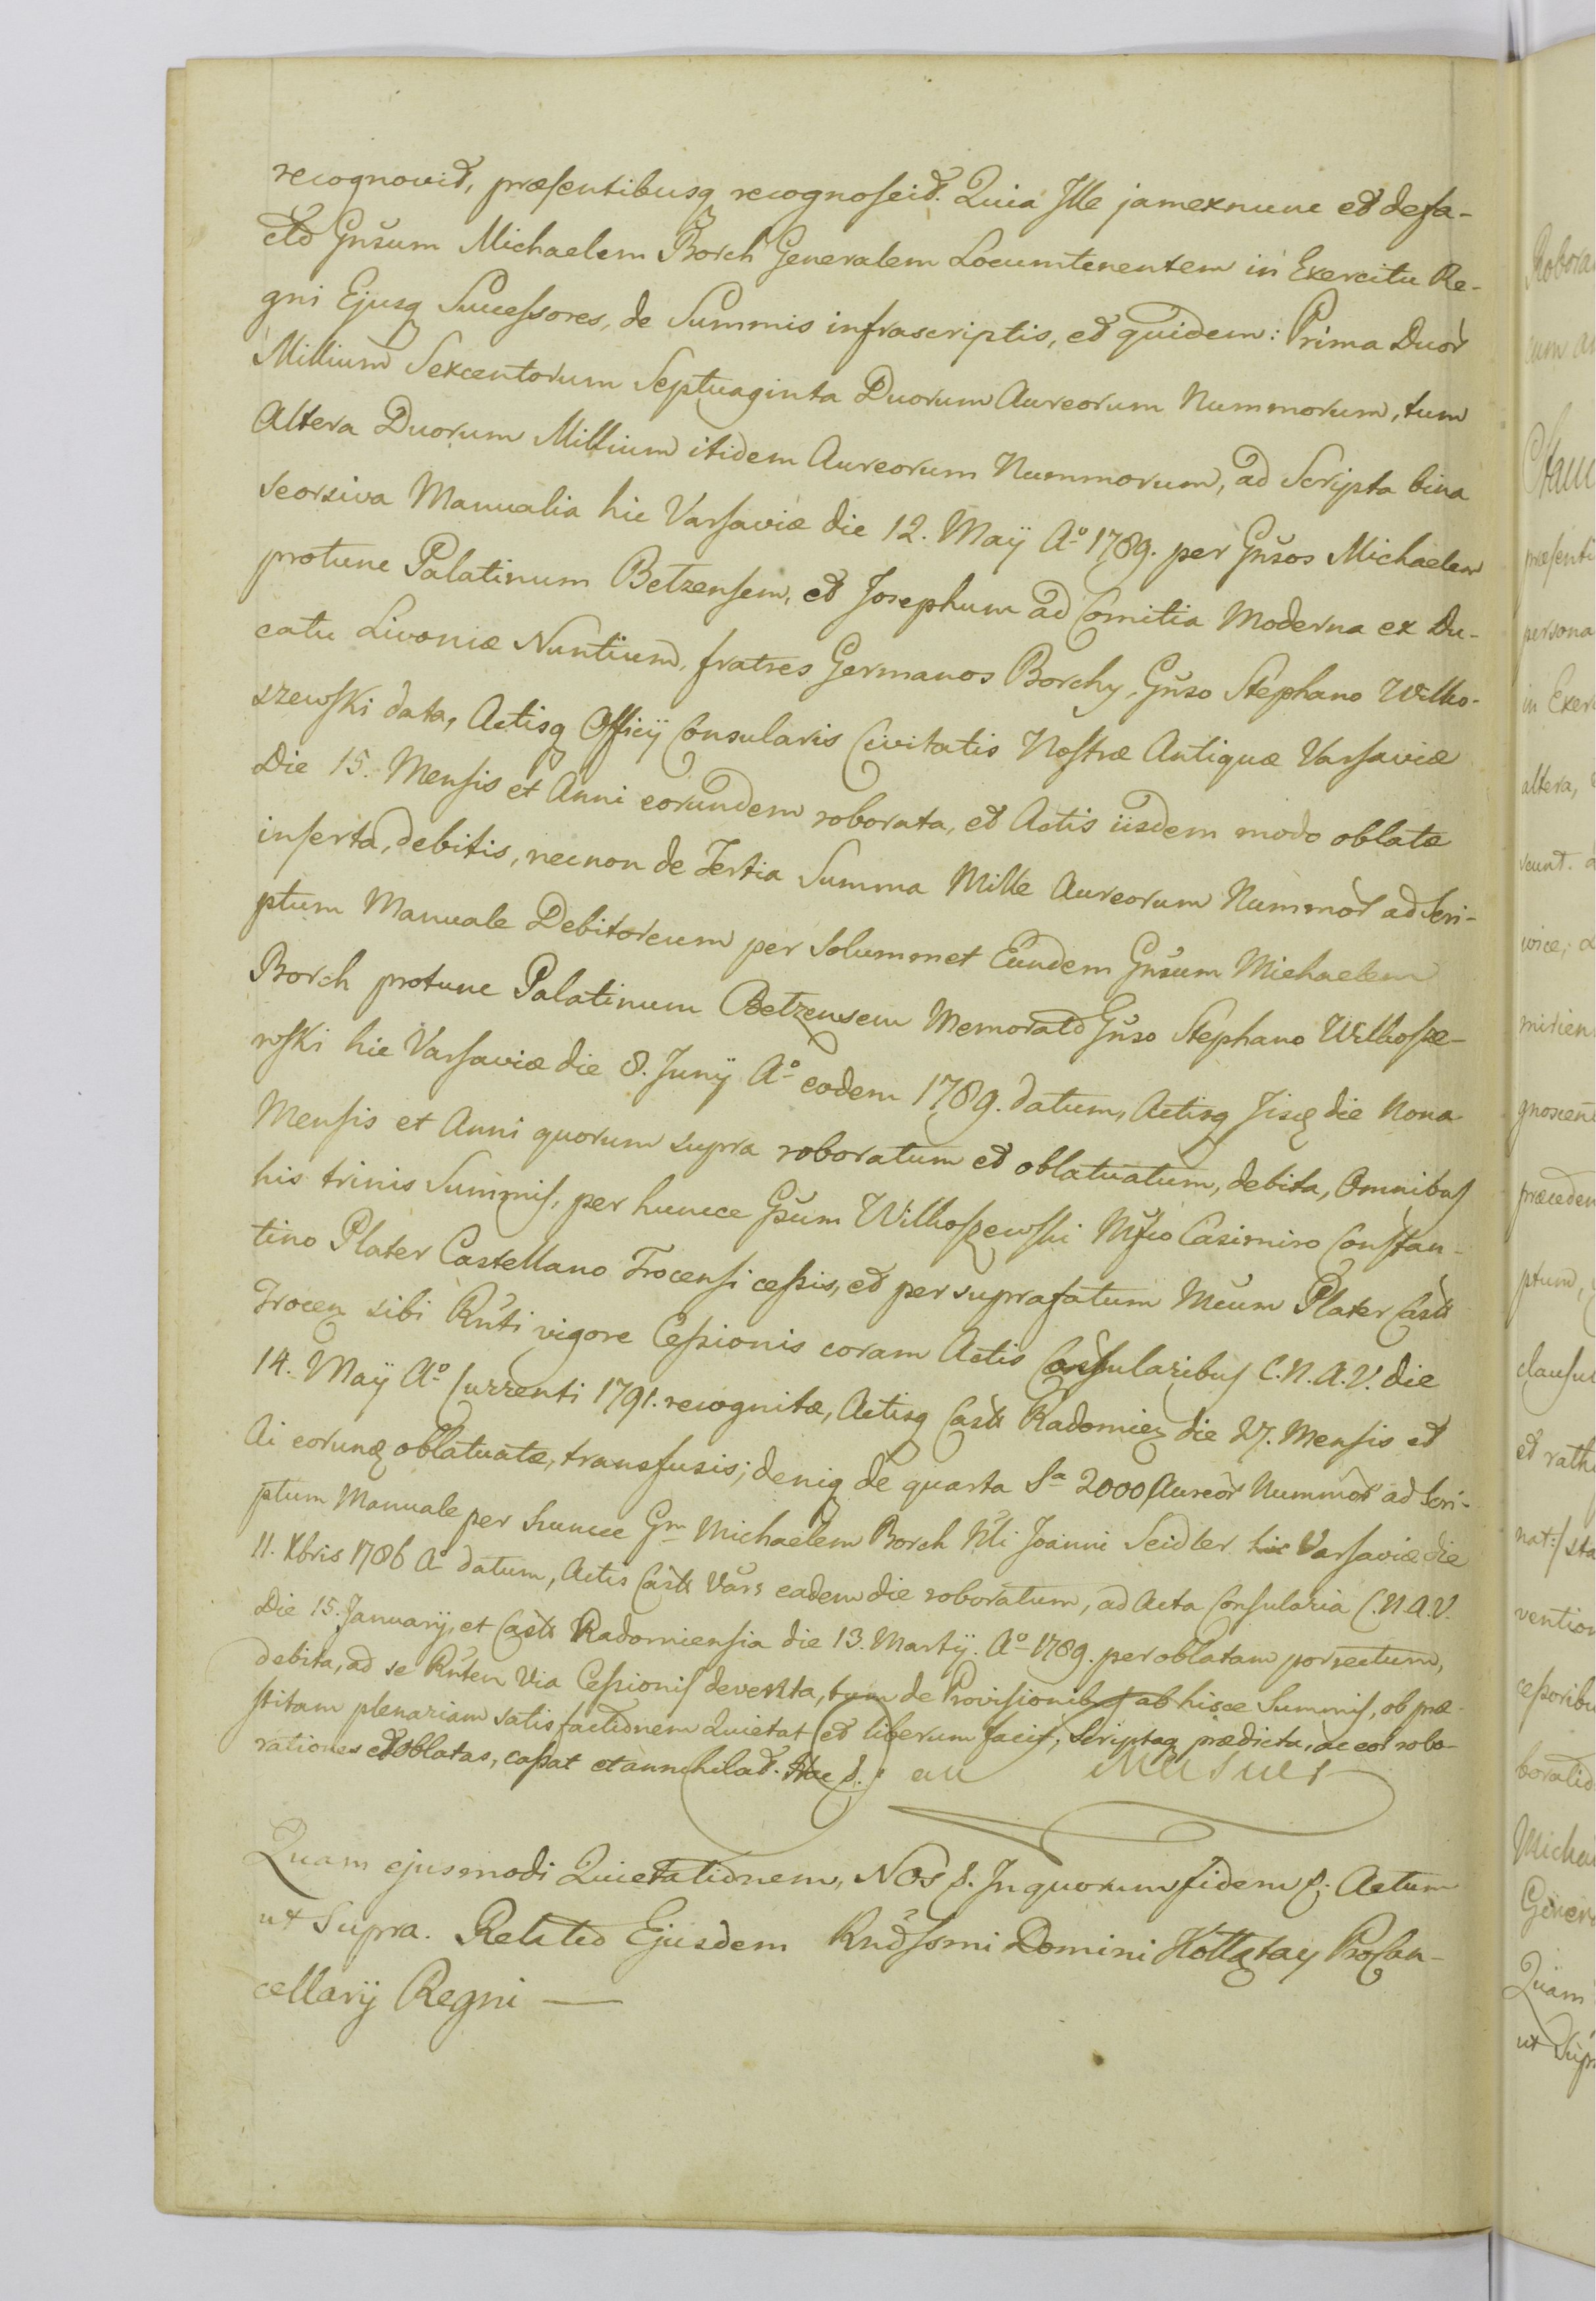 recognovit, præsentibusq recognoscit. Quia Ille jamexnunc et defa-
cto Gñsum Michaelem Borch Generalem Locumtenentem in Exercitu Re-
gni Ejusq Successores, de Summis infrascriptis, et quidem: Prima Duor
Millium Sexcentorum Septuaginta Duorum Aureorum Nummorum, tum
Altera Duorum Millium itidem Aureorum Nummorum, ad Scripta bina
seorsiva Manualia hic Varsaviæ die 12. Maÿ Aº 1789. per Gñsos Michaelem
protunc Palatinum Betzensem, et Josephum ad Comitia Moderna ex Du-
catu Livoniæ Nuntium, fratres Germanos Borchy, Gñso Stephano Wilko-
szewski data, Actisq Officÿ Consularis Civitatis Nostræ Antiquæ Varsaviæ
Die 15. Mensis et Anni eorundem roborata, et Actis iisdem modo oblatæ
inserta, debitis, necnon de Tertia Summa Mille Aureorum Nummor ad Scri-
ptum Manuale Debitoreum per Solummet Eundem Gñsum Michaelem
Borch protunc Palatinum Betzensem Memorato Gñso Stephano Wilkosze-
wski hic Varsaviæ die 8. Junÿ Aº eodem 1789. datum, Actisq Iisq die Nona
Mensis et Anni quorum supra roboratum et oblatuatum, debita, Omnibus
his trinis Summis, per huncce Gsum Wilkoszewski Mfico Casimiro Constan-
tino Plater Castellano Trocensi cessis, et per suprafatum Mcum Plater Castt
Trocen sibi Rñti vigore Cessionis coram Actis Consularibus C.N.A.V. die
14. Maÿ Aº Currenti 1791. recognitæ, Actisq Castt Radomien die 27. Mensis et
Ai eorunq oblatuatæ, transfusis; deniq de quarta Sª 2000 Aureor Nummor ad Scri-
ptum Manuale per huncce Gm Michaelem Borch Nli Joanni Seidler hic Varsaviæ die
11. Xbris 1786 Aº datum, Actis Castt Vars eadem die roboratum, ad Acta Consularia C.N.A.V.
Die 15. Januarÿ, et Castt Radomiensia die 13. Martÿ. Aº 1789. per oblatam porrectum,
debita, ad se Rñten Via Cessionis deventa, tum de Provisionibus ab hisce Summis, ob præ-
stitam plenariam satisfactionem Quietat et liberum facit, Scriptaq prædicta, ac eor robo-
rationes et oblatas, cassat et annihilat.
Quam ejusmodi Quietationem, Nos p. In quorum fidem p. Actum
ut Supra. Relatio Ejusdem Rndssmi Domini Kołłątay ProCan-
cellarÿ Regni —